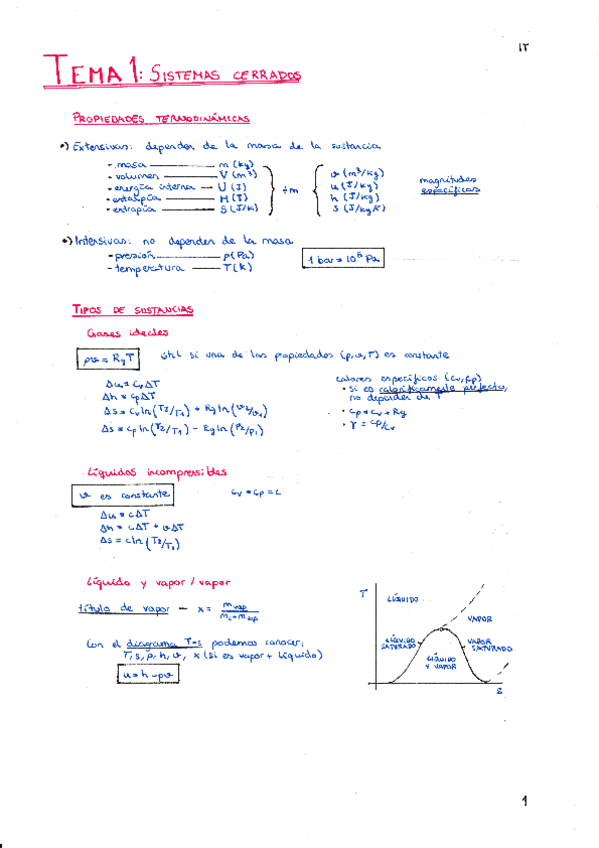 IT
TEMA 1: SISTEMAS CERRADOS
PROPIEDADES TERMODINÁMICAS
•) Extensivas: dependen de la masa de la sustancia
- masa — m (kg)
- volumen — V (m³)
- energía interna — U (J)
- entalpía — H (J)
- entropía — S (J/K)
÷m
v (m³/kg)
u (J/kg)
h (J/kg)
s (J/kgK)
magnitudes
específicas
•) Intensivas: no dependen de la masa
- presión — p (Pa)
- temperatura — T (K)
1 bar = 10⁵ Pa
TIPOS DE SUSTANCIAS
Gases ideales
pv = RgT
útil si una de las propiedades (p, v, T) es constante
Δu = CvΔT
Δh = CpΔT
Δs = Cv ln(T2/T1) + Rg ln(v2/v1)
Δs = Cp ln(T2/T1) - Rg ln(P2/P1)
calores específicos (Cv, Cp)
• si es calóricamente perfecto,
no depender de T
• Cp = Cv + Rg
• γ = Cp/Cv
Líquidos incompresibles
v es constante
Cv = Cp = c
Δu = cΔT
Δh = cΔT + vΔT
Δs = c ln(T2/T1)
Líquido y vapor / vapor
título de vapor — x = mvap / mL + mvap
Con el diagrama T-s podemos conocer:
T, s, p, h, v, x (si es vapor + líquido)
u = h - pv
T
LÍQUIDO
VAPOR
LÍQUIDO
SATURADO
VAPOR
SATURADO
LÍQUIDO
Y VAPOR
s
1